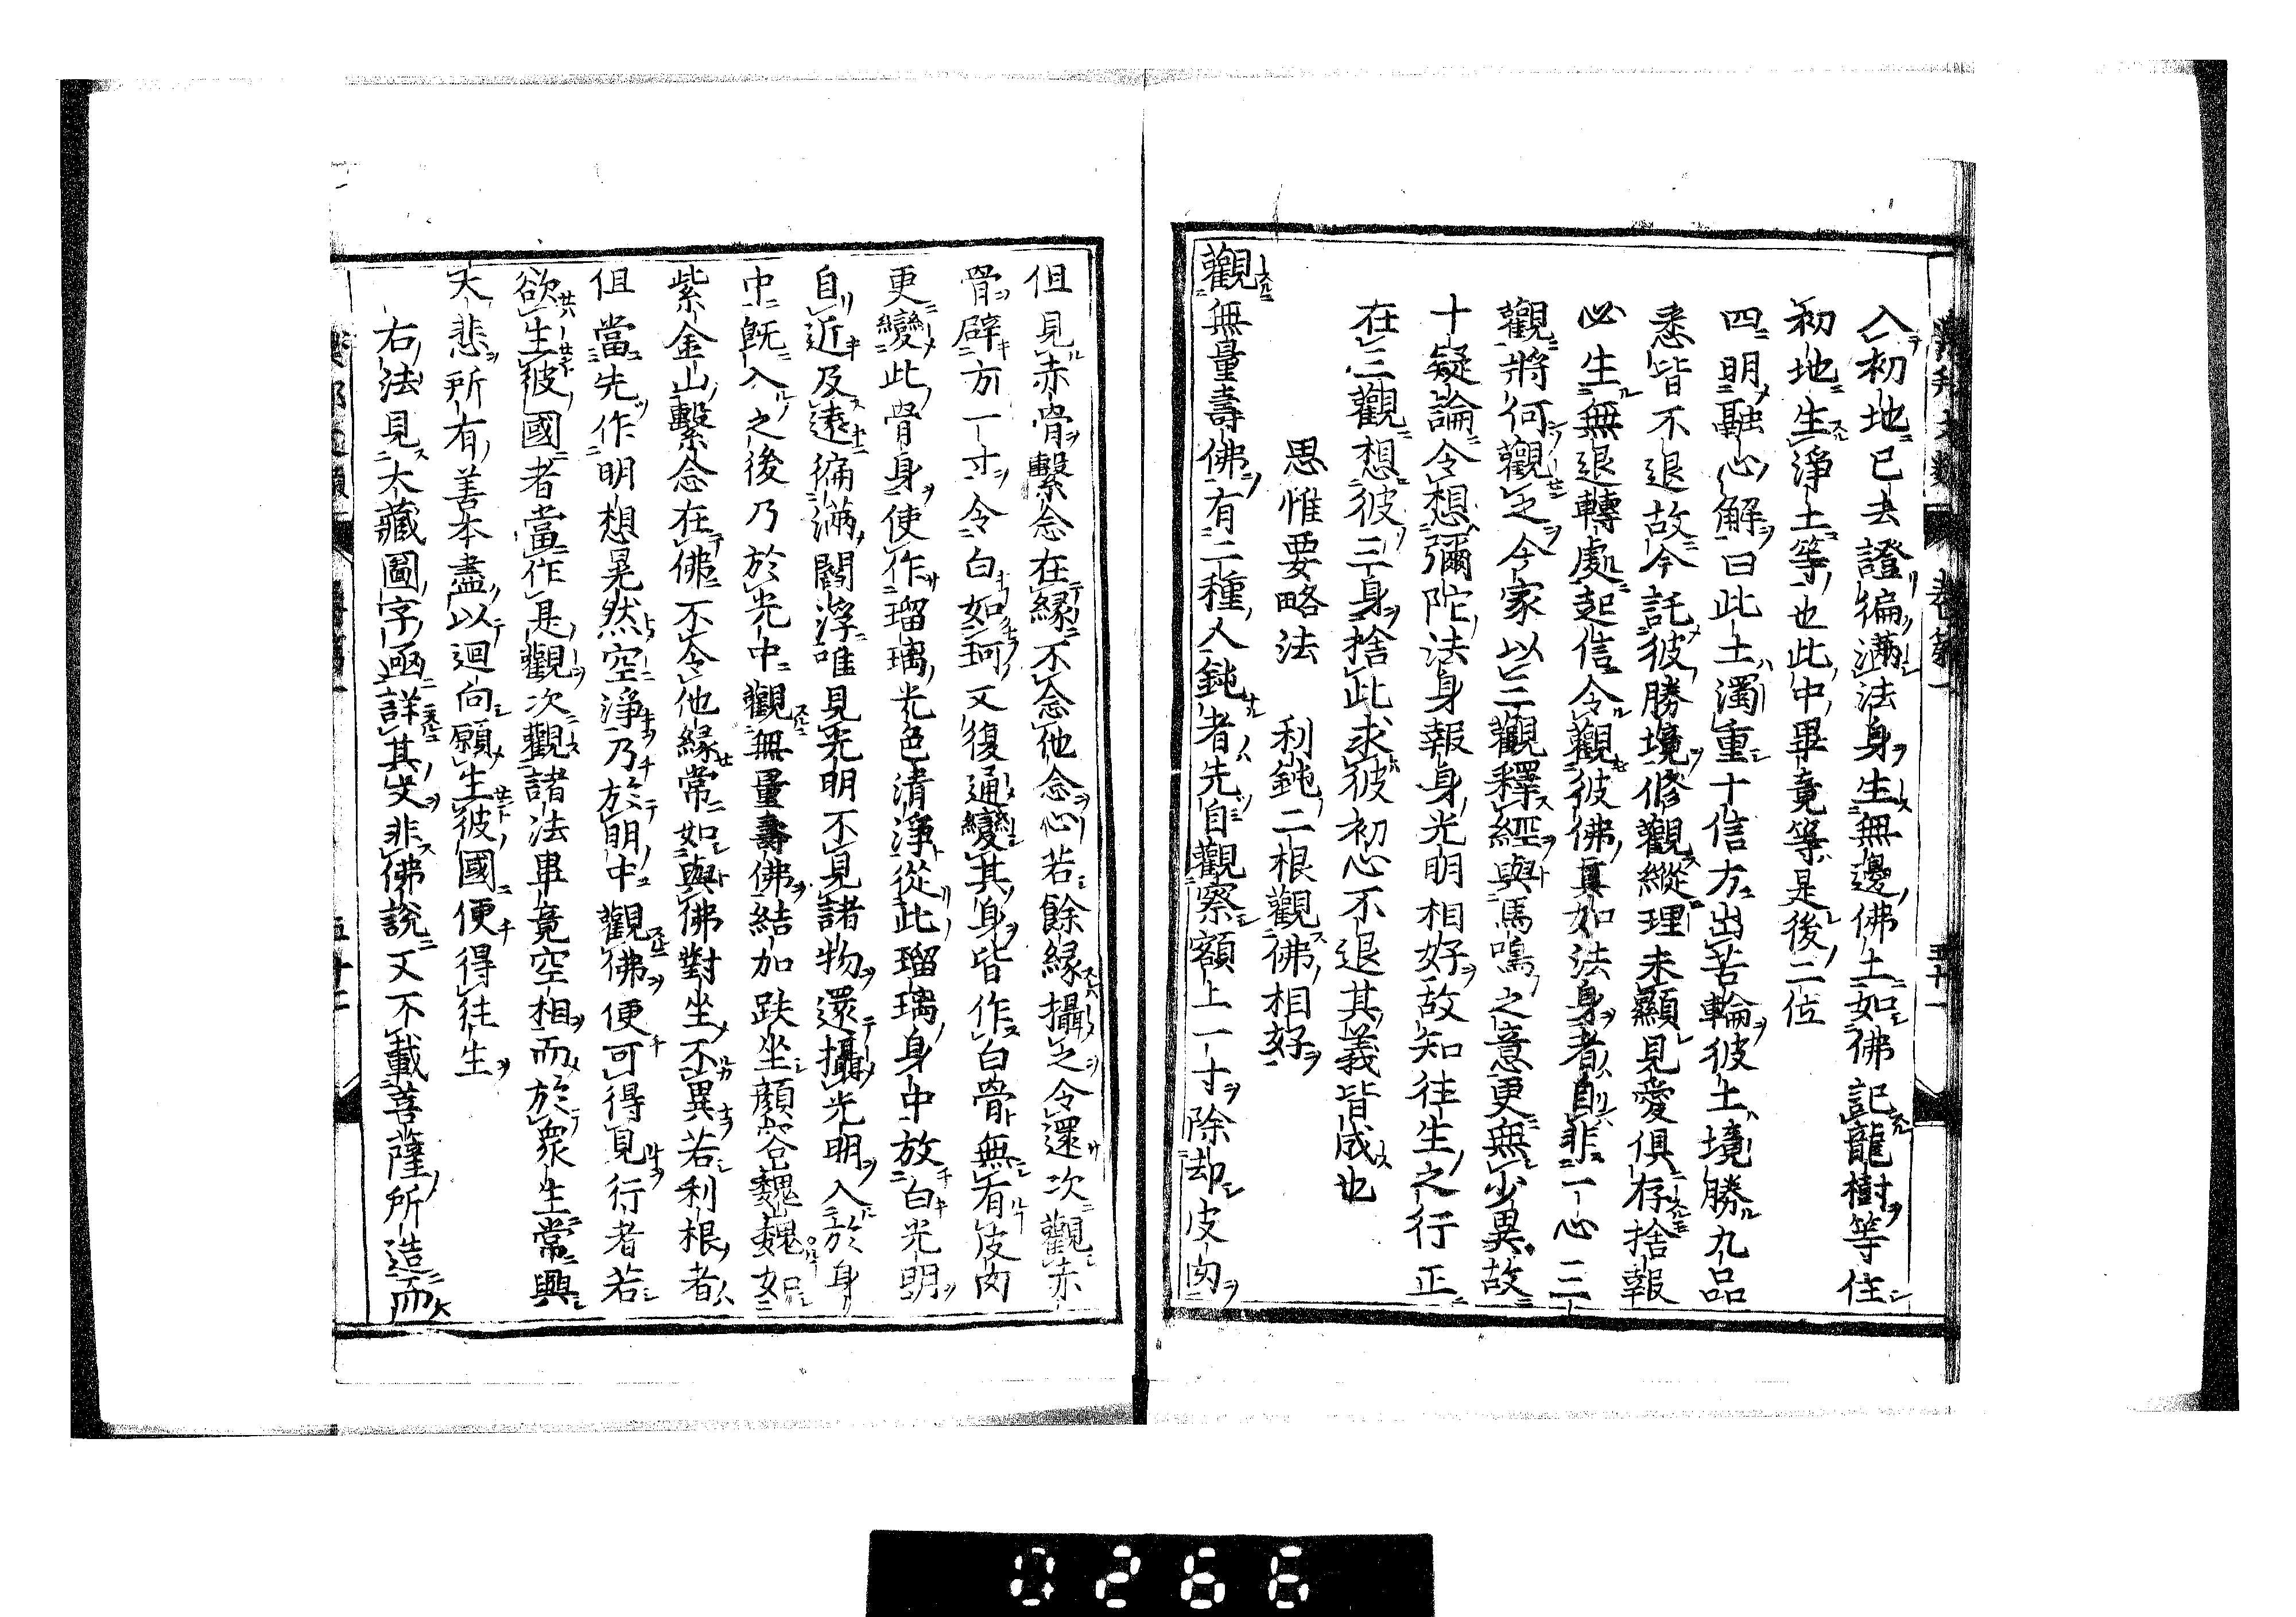 入初地已去證徧滿法身生無邊佛土如佛記龍樹等住
初地生淨土等也此中畢竟等是後二位
四明融心解曰此土濁重十信方出苦輪彼土境勝九品
悉皆不退故今託彼勝境修觀縱理未顯見愛俱存捨報
必生無退轉處起信令觀彼佛真如法身者自非一心三
觀將何觀之今家以三觀釋經與馬鳴之意更無少異故
十疑論令想彌陀法身報身光明相好故知往生之行正
在三觀想彼三身捨此求彼初心不退其義皆成也
思惟要略法　利鈍二根觀佛相好
觀無量壽佛有二種人鈍者先自觀察額上一寸除却皮肉
但見赤骨繫念在緣不念他念心若餘緣攝之令還次觀赤
骨辟方一寸令白如珂又復通變其身皆作白骨無有皮肉
更變此骨身使作瑠璃光色清淨從此瑠璃身中放白光明
自近及遠徧滿閻浮唯見光明不見諸物還攝光明入於身
中既入之後乃於光中觀無量壽佛結加趺坐顏容巍巍如
紫金山繫念在佛不令他緣常如與佛對坐不異若利根者
但當先作明想晃然空淨乃於明中觀佛便可得見行者若
欲生彼國者當作是觀次觀諸法畢竟空相而於衆生常興
大悲所有善本盡以迴向願生彼國便得往生
右法見大藏圖字函詳其文非佛說又不載菩薩所造而
卷第一
0266